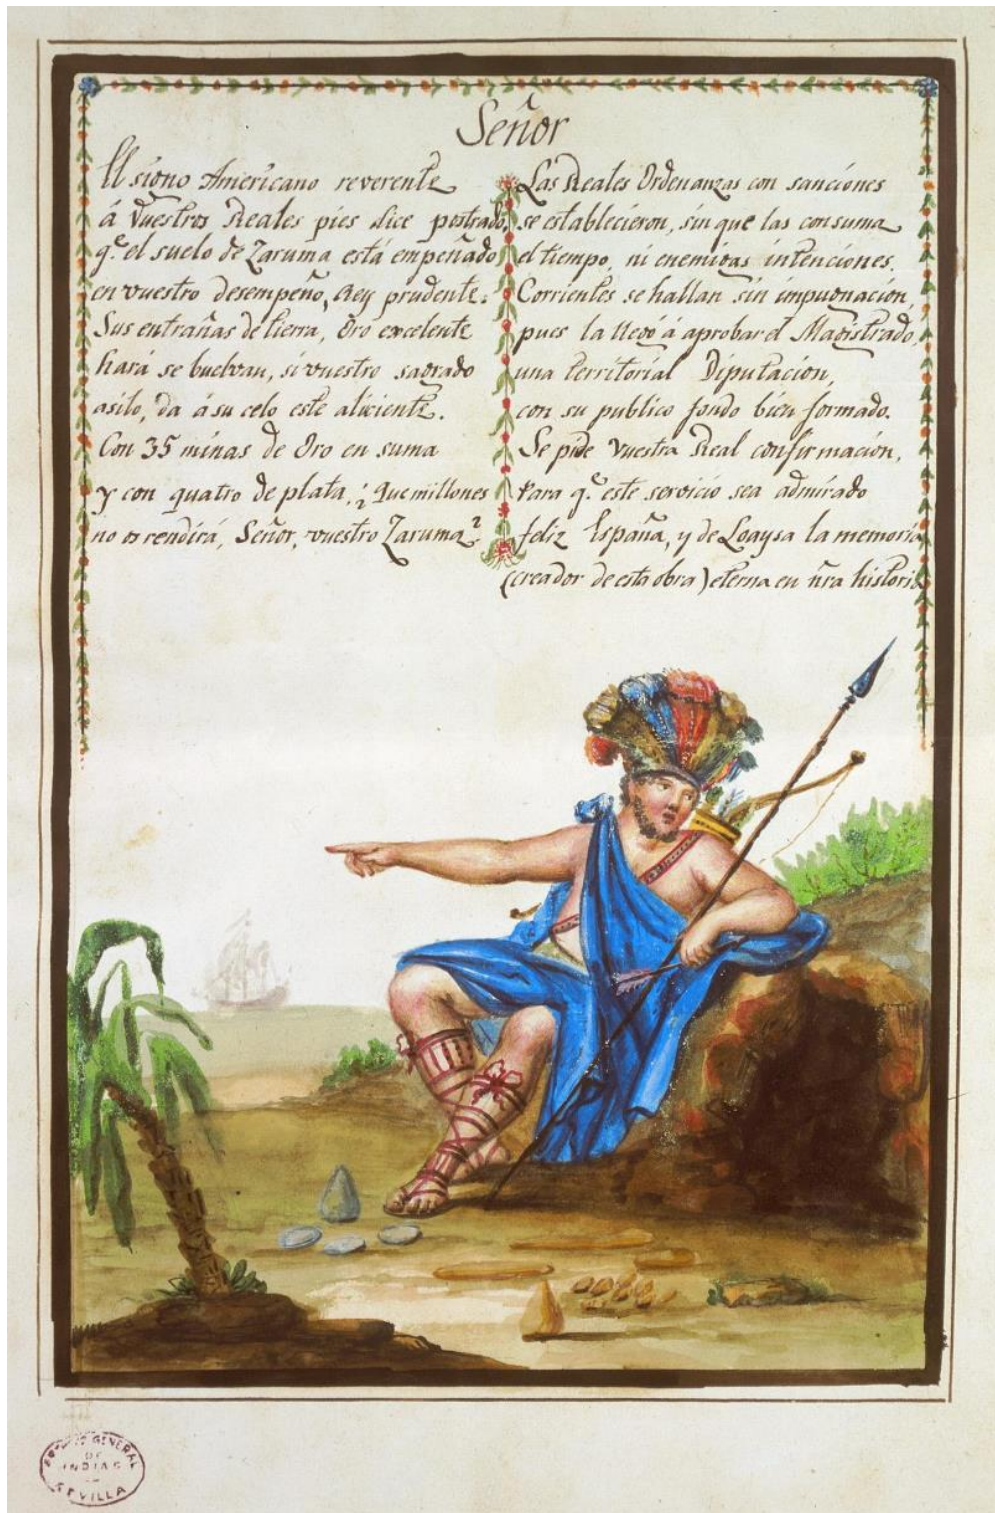 Señor
El signo Americano reverente
á Vuestros Reales pies dice postrado,
q.e el suelo de Zaruma está empeñado
en vuestro desempeño, Rey prudente.
Sus entrañas de tierra, Oro excelente
hará se buelvan, si vuestro sagrado
asilo, da á su celo este aliciente.
Con 35 minas de Oro en suma
y con quatro de plata, ¿Que millones
no os rendirá, Señor, vuestro Zaruma?
Las Reales Ordenanzas con sanciones
se establecieron, sin que las consuma
el tiempo, ni enemigas intenciones.
Corrientes se hallan sin impugnación,
pues la llegó á aprobar el Magistrado,
una territorial Diputacion,
con su publico fondo bien formado.
Se pide Vuestra Real confirmación,
Para q.e este servicio sea admirado
feliz España, y de Loaysa la memoria
(creador de esta obra) eterna en ñra historia
GENERAL
DE
INDIAS
SEVILLA